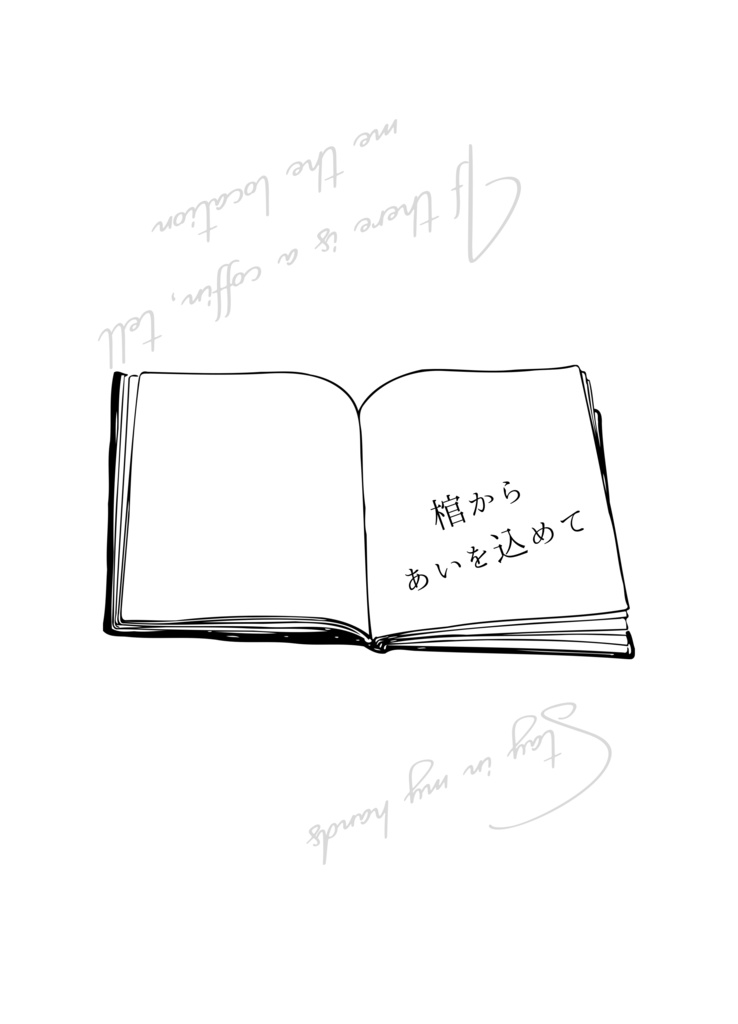 If there is a coffin, tell
me the location
棺から
あいを込めて
Stay in my hands